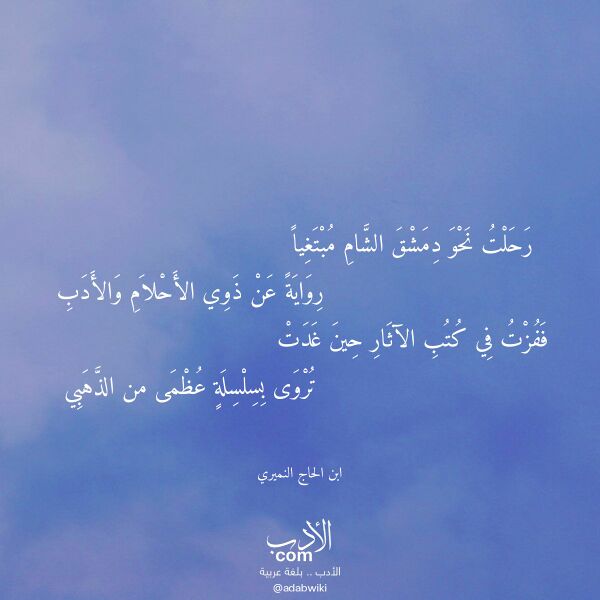 رَحَلْتُ نَحْوَ دِمَشْقَ الشَّامِ مُبْتَغِياً
رِوَايَةً عَنْ ذَوِي الأَحْلاَمِ وَالأَدَبِ
فَفُزْتُ فِي كُتُبِ الآثَارِ حِينَ غَدَتْ
تُرْوَى بِسِلْسِلَةٍ عُظْمَى من الذَّهَبِي
ابن الحاج النميري
الأدب
com
الأدب .. بلغة عربية
@adabwiki